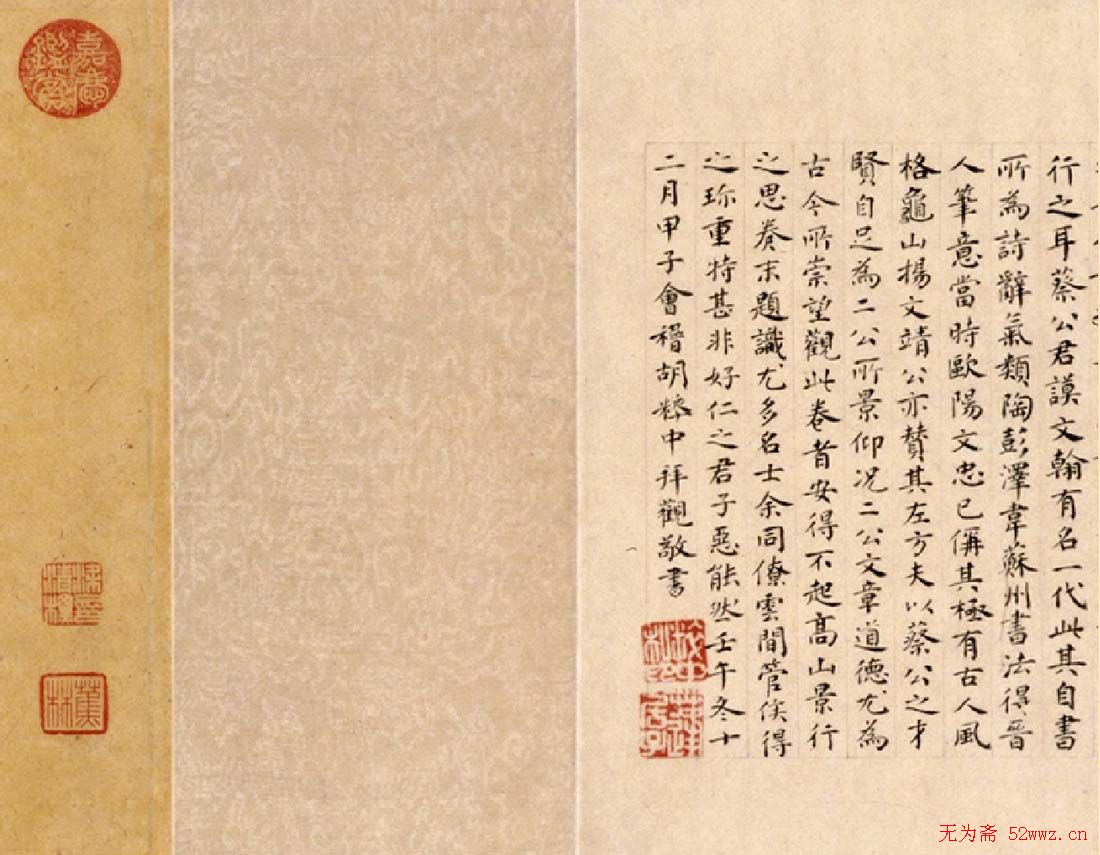 行之耳蔡公君謨文翰有名一代此其自書
所為詩辭氣類陶彭澤韋蘇州書法得晉
人筆意當時歐陽文忠已稱其極有古人風
格龜山揚文靖公亦贊其左方夫以蔡公之才
賢自足為二公所景仰况二公文章道德尤為
古今所崇望觀此卷者安得不起高山景行
之思卷末題識尤多名士余同僚雲間管侯得
之珎重特甚非好仁之君子惡能然壬午冬十
二月甲子會稽胡粹中拜觀敬書
嘉慶鑑賞
蕉林
无为斋 52wwz.cn